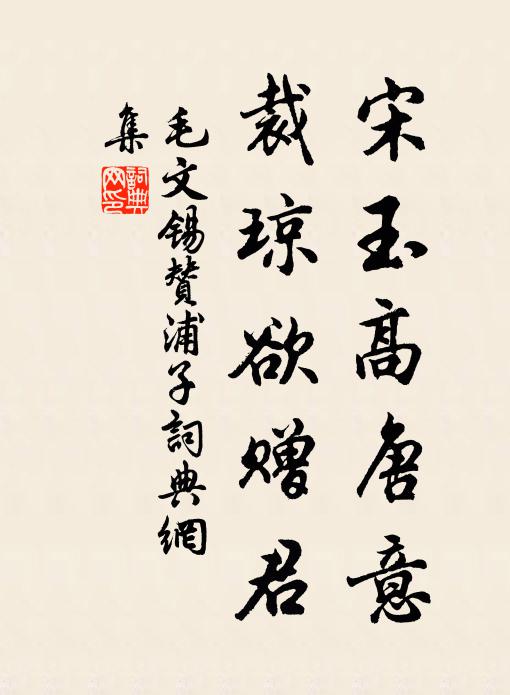 宋玉高唐意
裁琼欲赠君
毛文锡赞浦子詞典網
集
詞典
网印